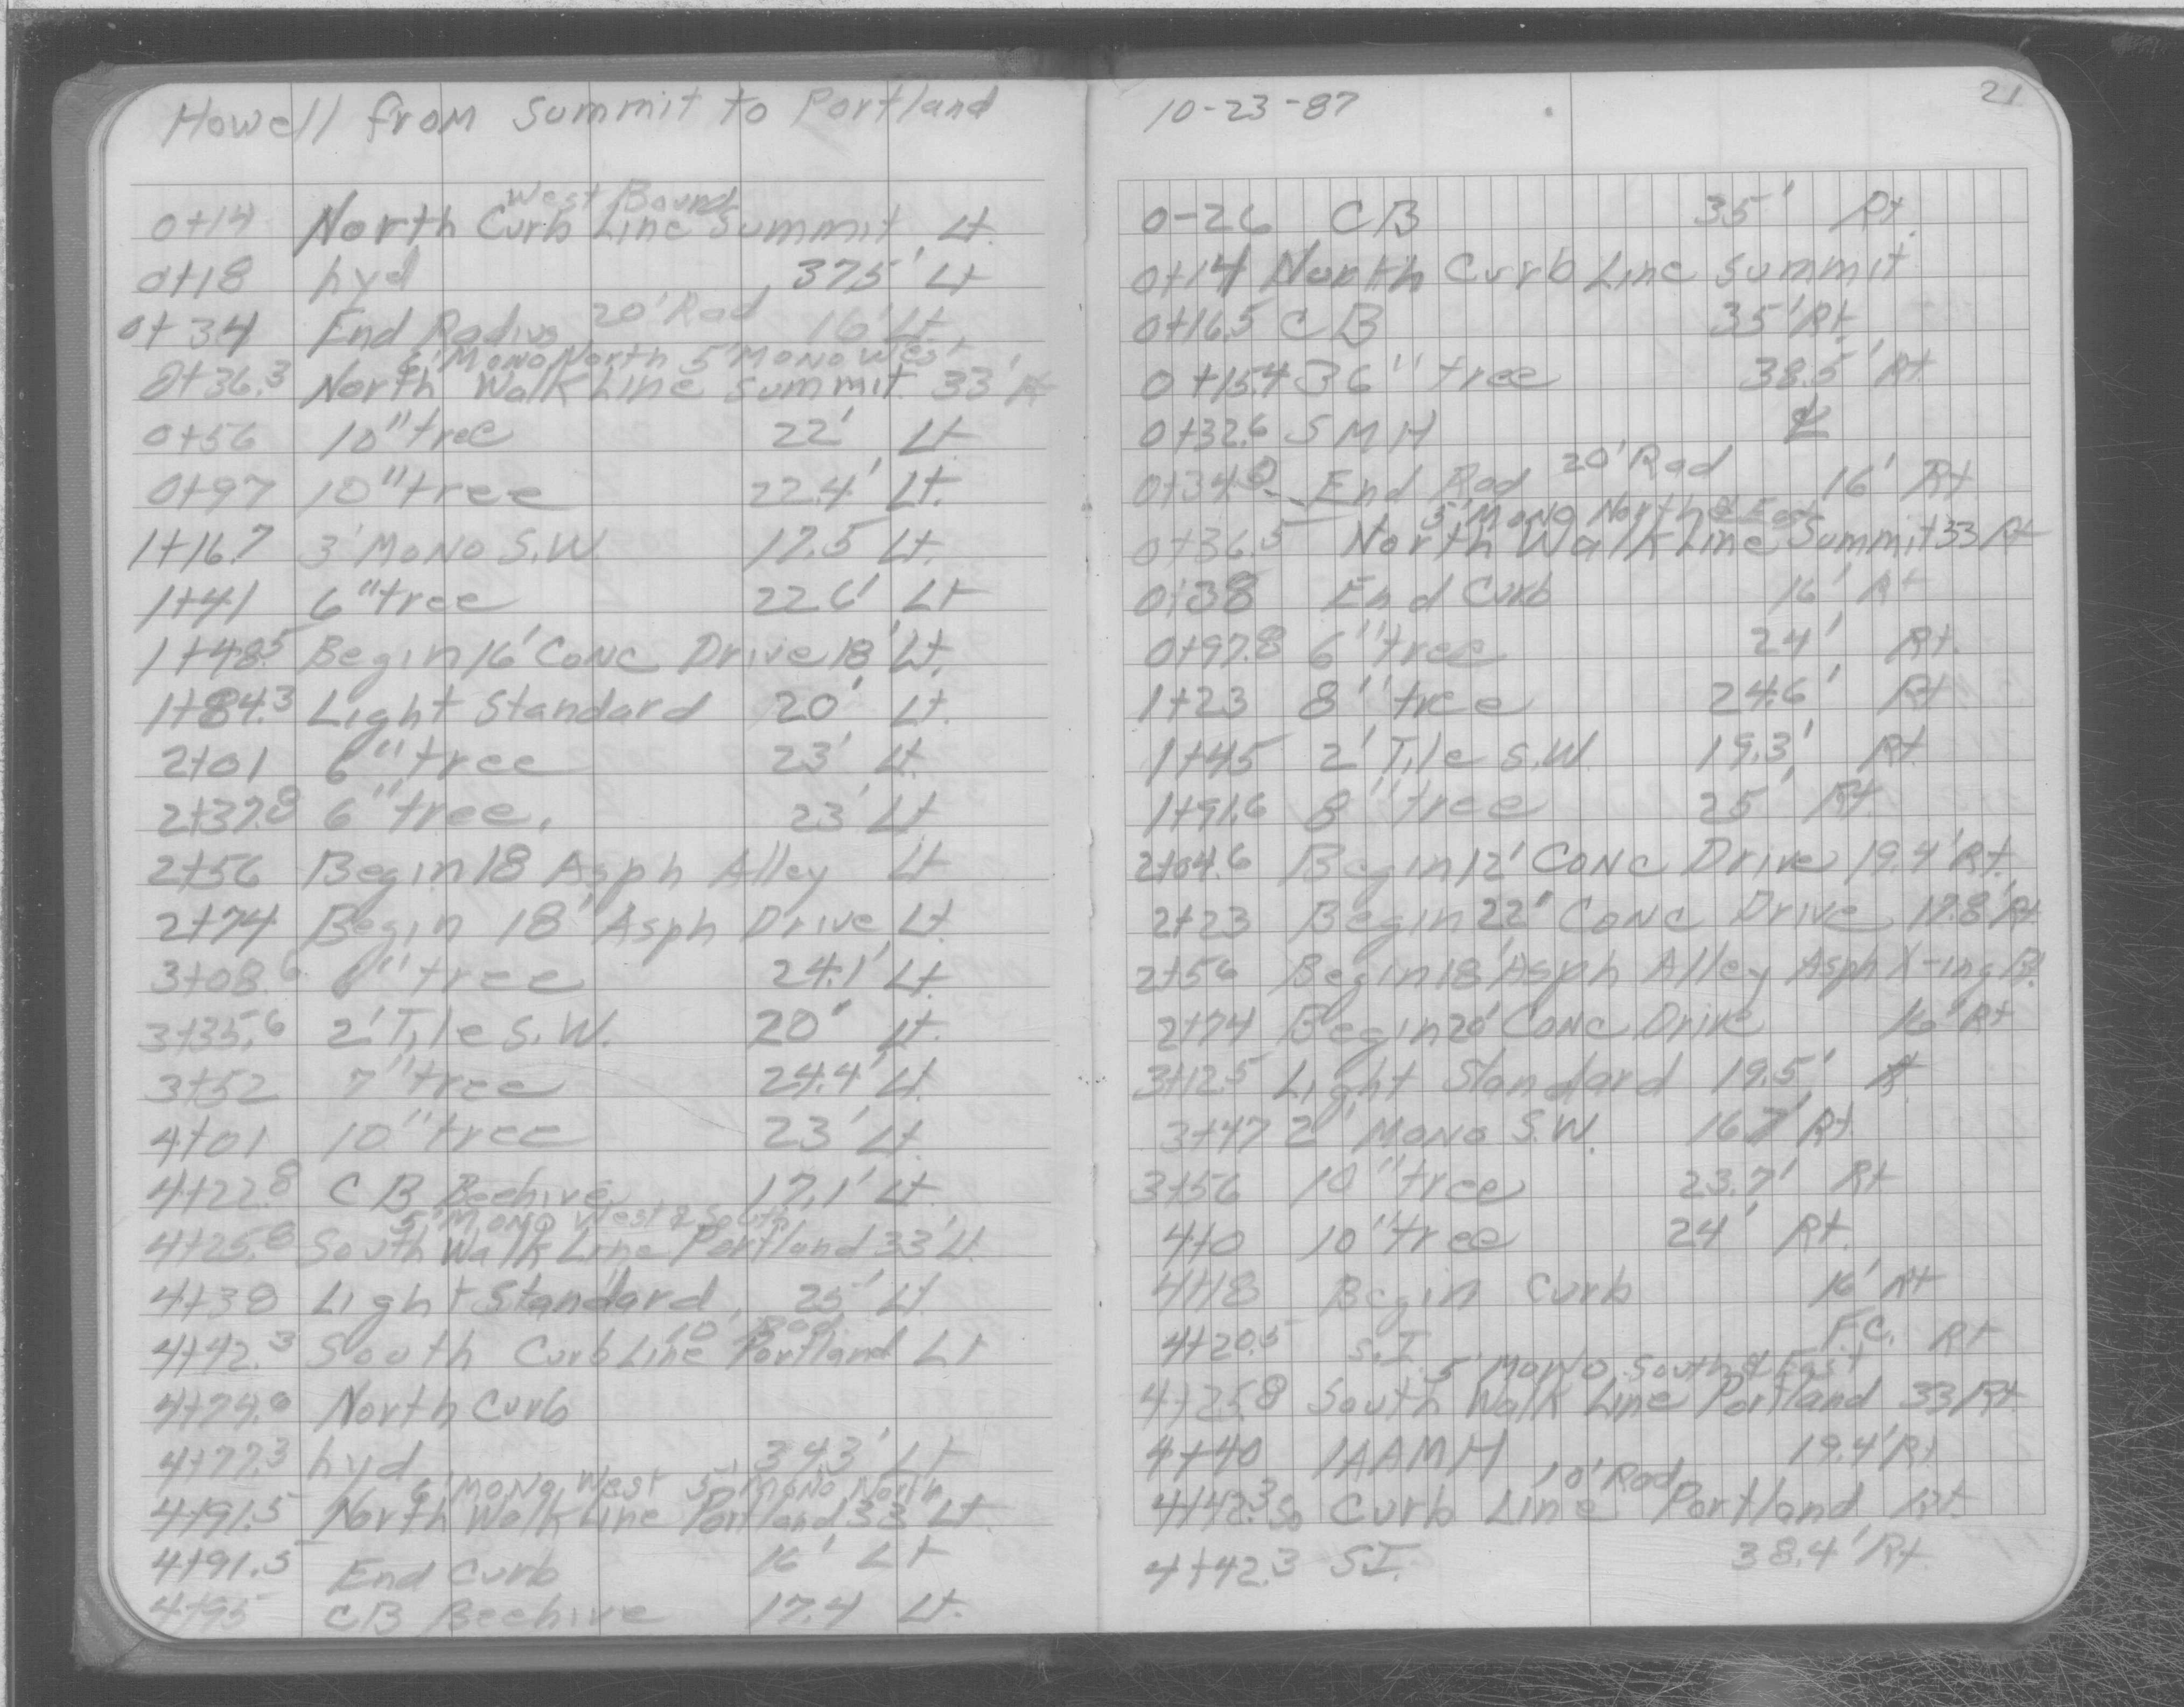 Howell from Summit to Portland
West Bound
0+14 North Curb Line Summit Lt.
0+18 hyd 37.5' Lt
0+34 End Radius 20' Rad 16' Lt.
6' Mono North 5' Mono West
0+36.3 North Walk Line Summit 33'
0+56 10" tree 22' Lt
0+97 10" tree 22.4' Lt.
1+16.7 3' Mono S.W 17.5' Lt.
1+41 6" tree 22.6' Lt
1+48.5 Begin 16' Conc Drive 18' Lt.
1+84.3 Light Standard 20' Lt.
2+01 6" tree 23' Lt.
2+37.8 6" tree. 23' Lt
2+56 Begin 18 Asph Alley Lt
2+74 Begin 18' Asph Drive Lt.
3+08.6 6" tree 24.1' Lt.
3+35.6 2' Tile S.W. 20" Lt.
3+52 7" tree 24.4' Lt.
4+01 10" tree 23' Lt.
4+22.8 CB Beehive 17.1' Lt
5' Mono West & South
4+25.8 South Walk Line Portland 33' Lt.
4+38 Light Standard 25' Lt
10' Rad
4+42.3 South Curb Line Portland Lt
4+74.0 North Curb
4+77.3 hyd 34.3' Lt
6' Mono West 5' Mono North
4+91.5 North Walk Line Portland 33' Lt.
4+91.5 End Curb 16' Lt
4+95 CB Beehive 17.4 Lt.
10-23-87 21
0-26 CB 35' Rt.
0+14 North Curb Line Summit
0+16.5 CB 35' Rt.
0+15.4 36" tree 38.5' Rt
0+32.6 SMH ℄
0+34.0 End Rad 20' Rad 16' Rt
5' Mono North & East
0+36.5 North Walk Line Summit 33 Rt
0+38 End Curb 16' Rt
0+97.8 6" tree 24' Rt.
1+23 8" tree 24.6' Rt
1+45 2' Tile S.W. 19.3' Rt
1+91.6 8" tree 25' Rt.
2+04.6 Begin 12' Conc Drive 19.4' Rt.
2+23 Begin 22" Conc Drive 17.8' Rt
2+56 Begin 18' Asph Alley Asph X-ing Rt
2+74 Begin 20' Conc Drive 16' Rt
3+12.5 Light Standard 19.5' Rt
3+47 2' Mono S.W. 16.7' Rt.
3+56 10" tree 23.7' Rt
4+0 10" tree 24' Rt.
4+18 Begin Curb 16' Rt
4+20.5 S.I. F.C. Rt
5' Mono South & East
4+25.8 South Walk Line Portland 33 Rt.
4+40 1AAMH 19.4' Rt
10' Rad
4+42.3 So Curb Line Portland Rt.
4+42.3 SI. 38.4' Rt.